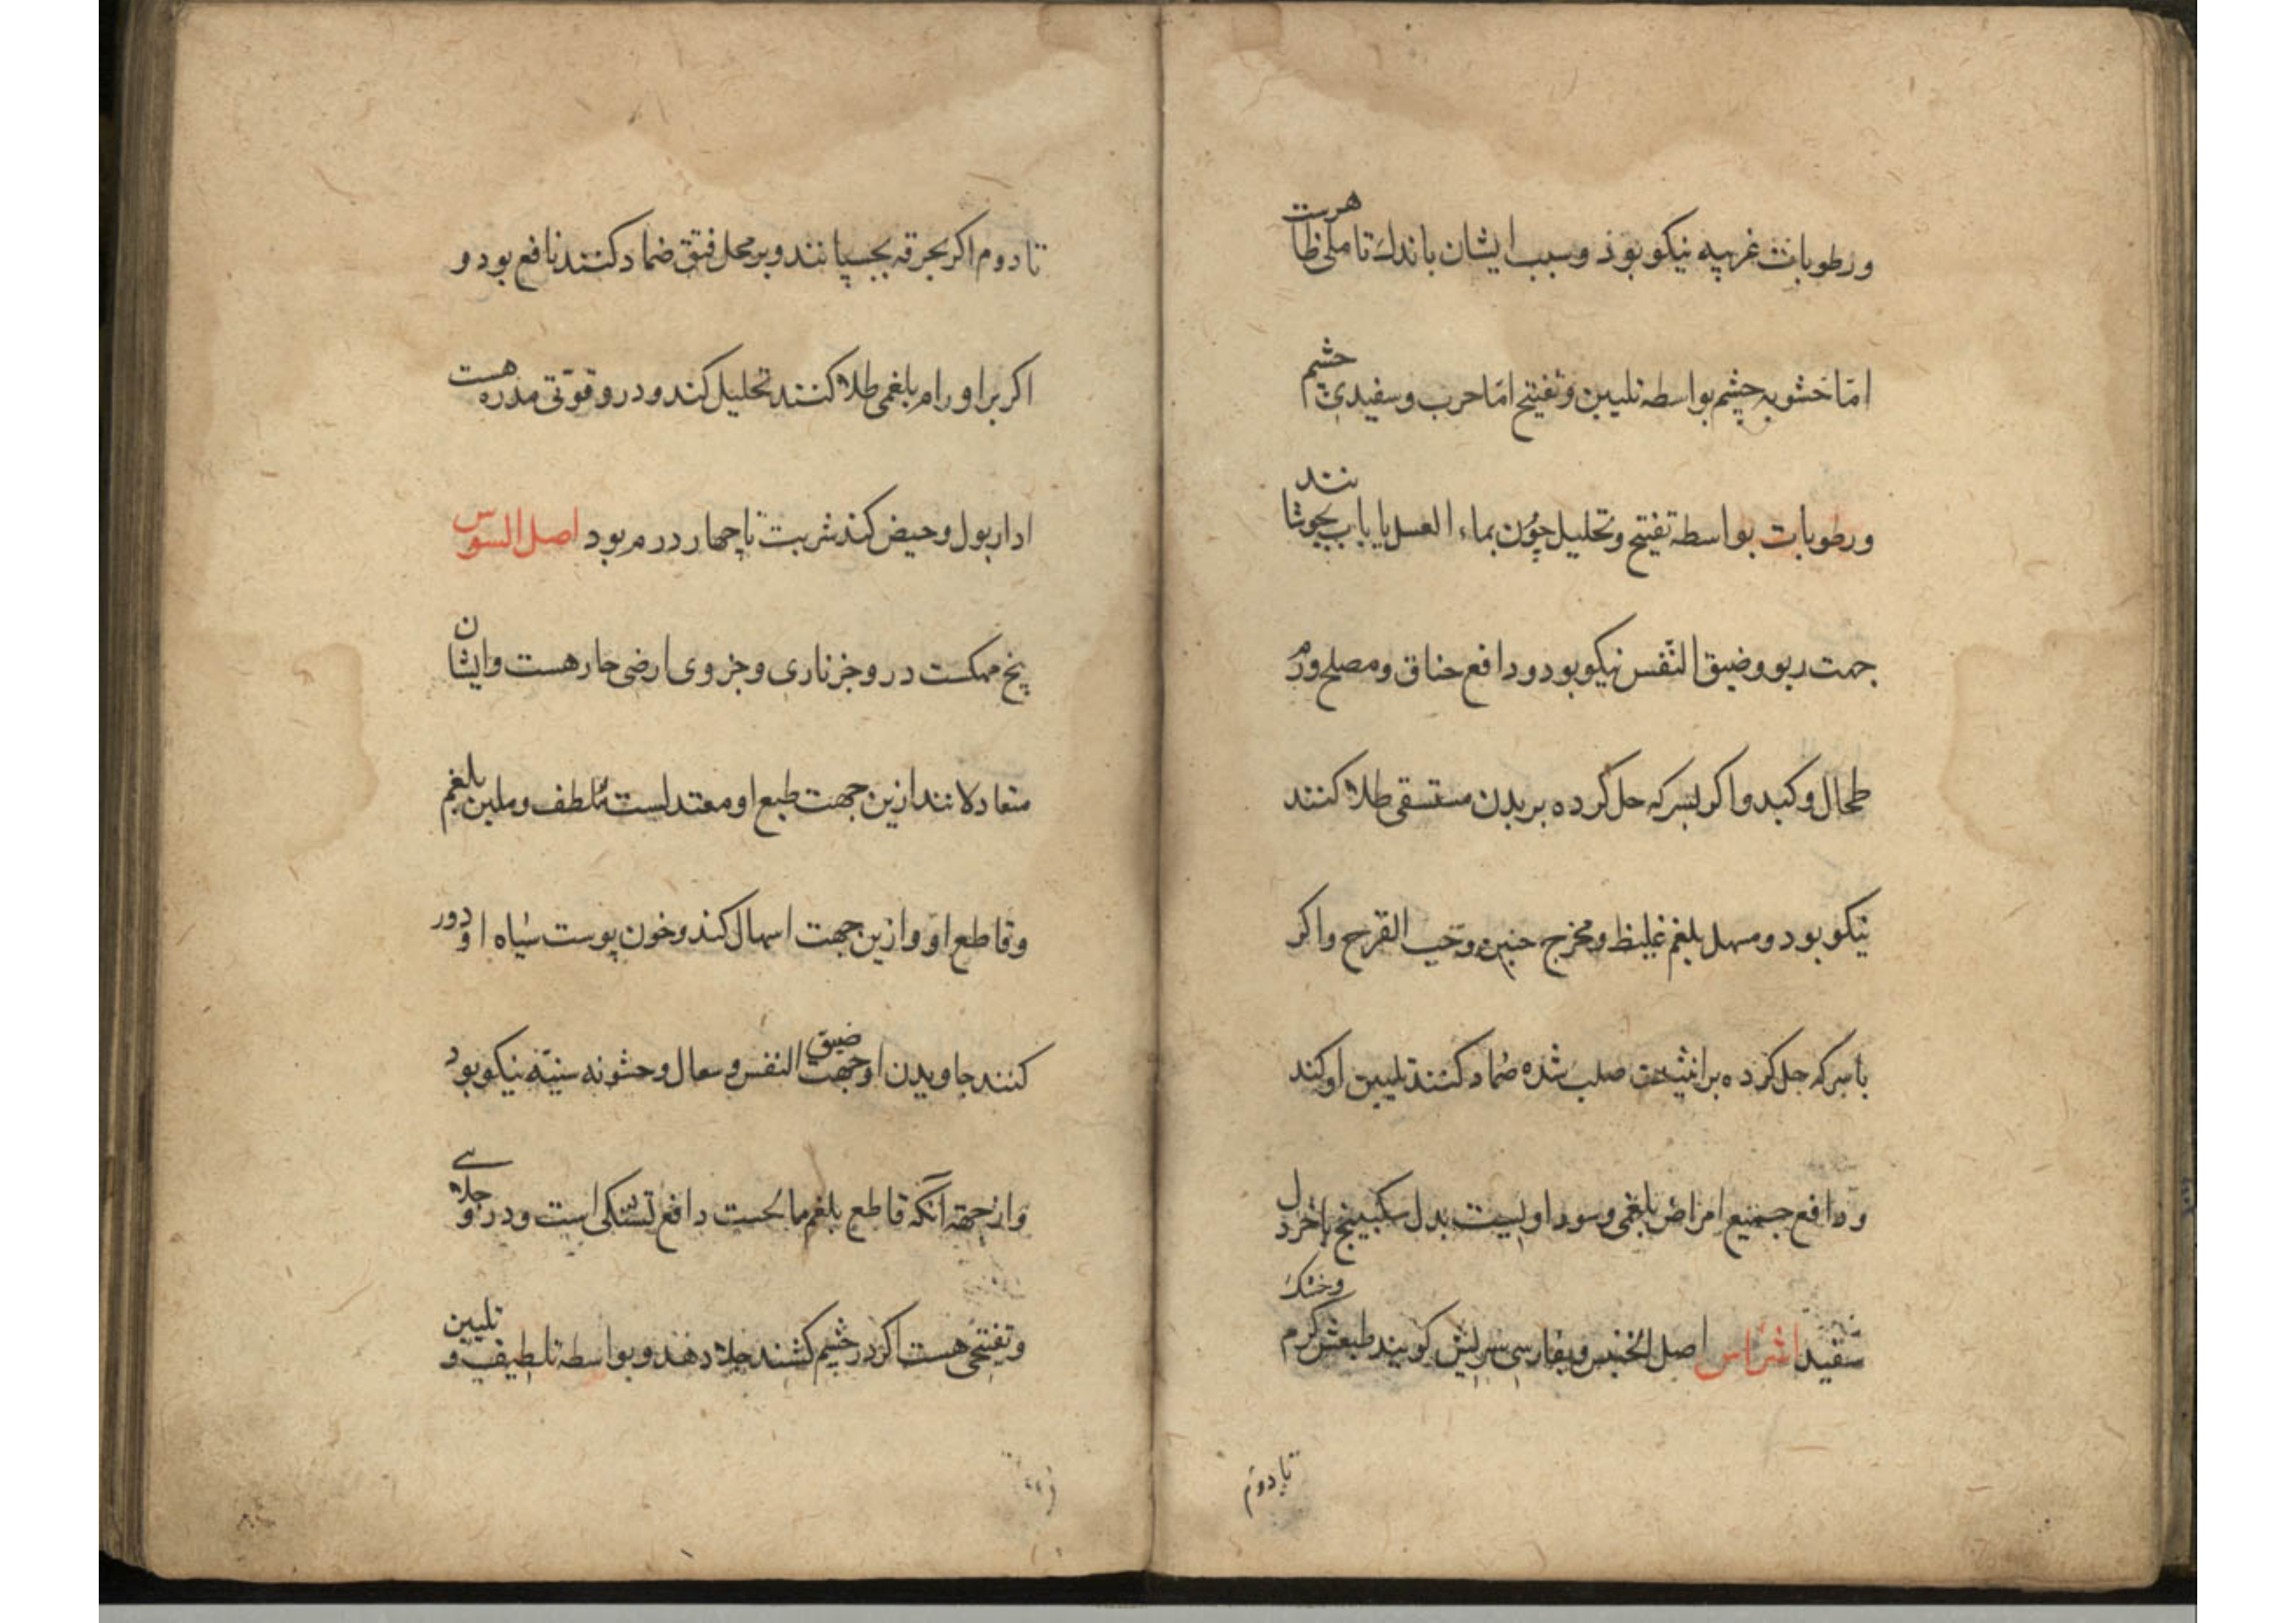 ورطوبات غریبه نیکو بوذ وسبب ایشان باندك تاملی ظاهرست
امّا خشونه چشم بواسطه تلیین وتفتیح امّا حرب وسفیدی چشم
ورطوبات بواسطه تفتیح وتحلیل چون بماء العسل یا باب بجوشانند
جهت ربو وضیق النفس نیکو بود ودافع خناق ومصلح ورم
طحال وکبد واکر بسرکه حل کرده بر بدن مستسقی طلا کنند
نیکو بود ومسهل بلغم غلیظ ومخرج جنین وحب القرح واکر
با سرکه حل کرده بر انثیین صلب شده ضماد کنند تلیین او کند
ودافع جمیع امراض بلغمی وسوداویست بدل سکبینج یا خردل
سفید اشراس اصل الخنثی وبفارسی سریش کویند طبعش کرم وخشك
تا دوم
تا دوم اکر بخرقه بچسپانند وبر محل فتق ضماد کنند نافع بود و
اکر بر اورام بلغمی طلا کنند تحلیل کند ودرو قوّتی مدره هست
ادار بول وحیض کند شربت تا چهار درم بود اصل السوس
بیخ مهکست درو جز ناری وجزوی ارضی حار هست وایشان
متعادلانند ازین جهت طبع او معتدلست ملطف وملین بلغم
وقاطع او وازین جهت اسهال کند وخون پوست سیاه او دور
کنند جاویدن او جهت ضیق النفس وسعال وخشونه سینه نیکو بود
واز جهة آنکه قاطع بلغم مالحست دافع تشنکی است ودرو جلای
وتفتیحی هست اکر در چشم کشند جلا دهد وبواسطه تلطیف وتلیین